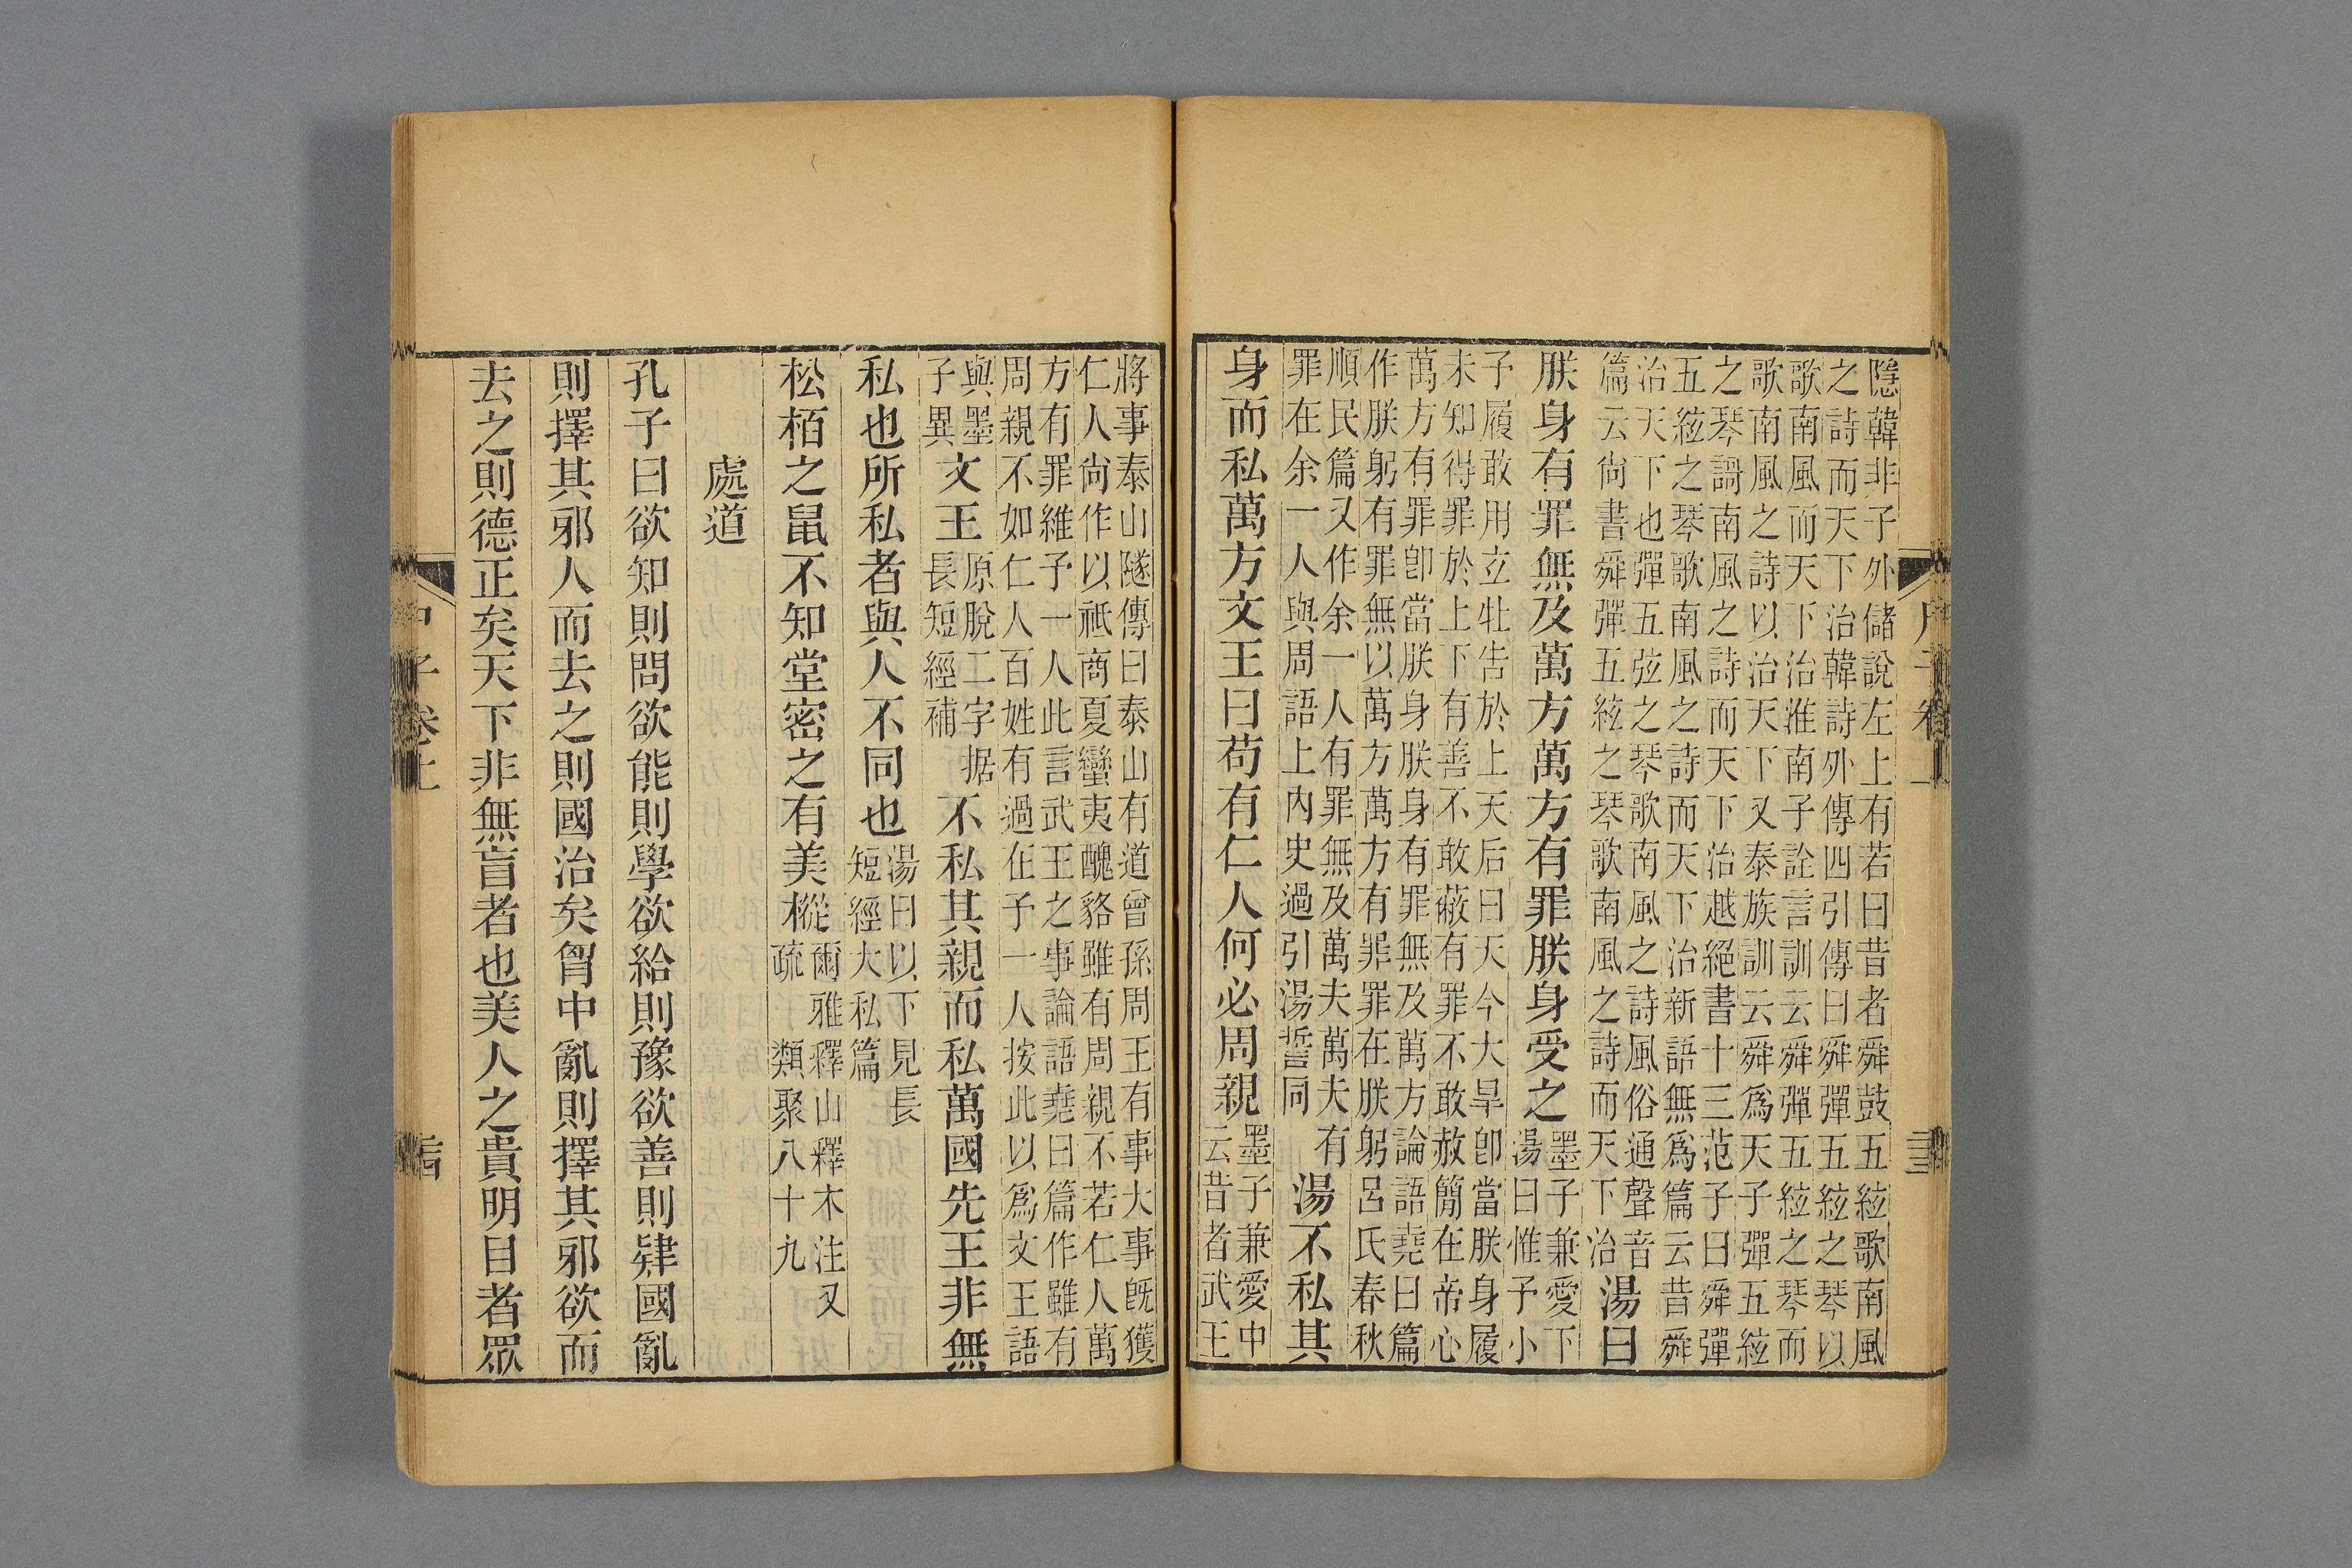 隱韓非子外儲說左上有若曰昔者舜鼓五絃歌南風
之詩而天下治韓詩外傳四引傳曰舜彈五絃之琴以
歌南風而天下治淮南子詮言訓云舜彈五絃之琴而
歌南風之詩以治天下又泰族訓云舜爲天子彈五絃
之琴謌南風之詩而天下治越絕書十三范子曰舜彈
五絃之琴歌南風之詩而天下治新語無爲篇云昔舜
治天下也彈五弦之琴歌南風之詩風俗通聲音
篇云尙書舜彈五絃之琴歌南風之詩而天下治
湯曰
朕身有罪無及萬方萬方有罪朕身受之
墨子兼愛下
湯曰惟予小
子履敢用玄牡告於上天后曰天今大旱卽當朕身履
未知得罪於上下有善不敢蔽有罪不敢赦簡在帝心
萬方有罪卽當朕身朕身有罪無及萬方論語堯曰篇
作朕躬有罪無以萬方萬方有罪罪在朕躬呂氏春秋
順民篇又作余一人有罪無及萬夫萬夫有
罪在余一人與周語上內史過引湯誓同
湯不私其
身而私萬方文王曰苟有仁人何必周親
墨子兼愛中
云昔者武王
將事泰山隧傳曰泰山有道曾孫周王有事大事旣獲
仁人尙作以祗商夏蠻夷醜貉雖有周親不若仁人萬
方有罪維予一人此言武王之事論語堯曰篇作雖有
周親不如仁人百姓有過在予一人按此以爲文王語
與墨
子異
文王
原脫二字据
長短經補
不私其親而私萬國先王非無
私也所私者與人不同也
湯曰以下見長
短經大私篇
松栢之鼠不知堂密之有美樅
爾雅釋山釋木注又
疏類聚八十九
處道
孔子曰欲知則問欲能則學欲給則豫欲善則肄國亂
則擇其邪人而去之則國治矣胷中亂則擇其邪欲而
去之則德正矣天下非無盲者也美人之貴明目者眾